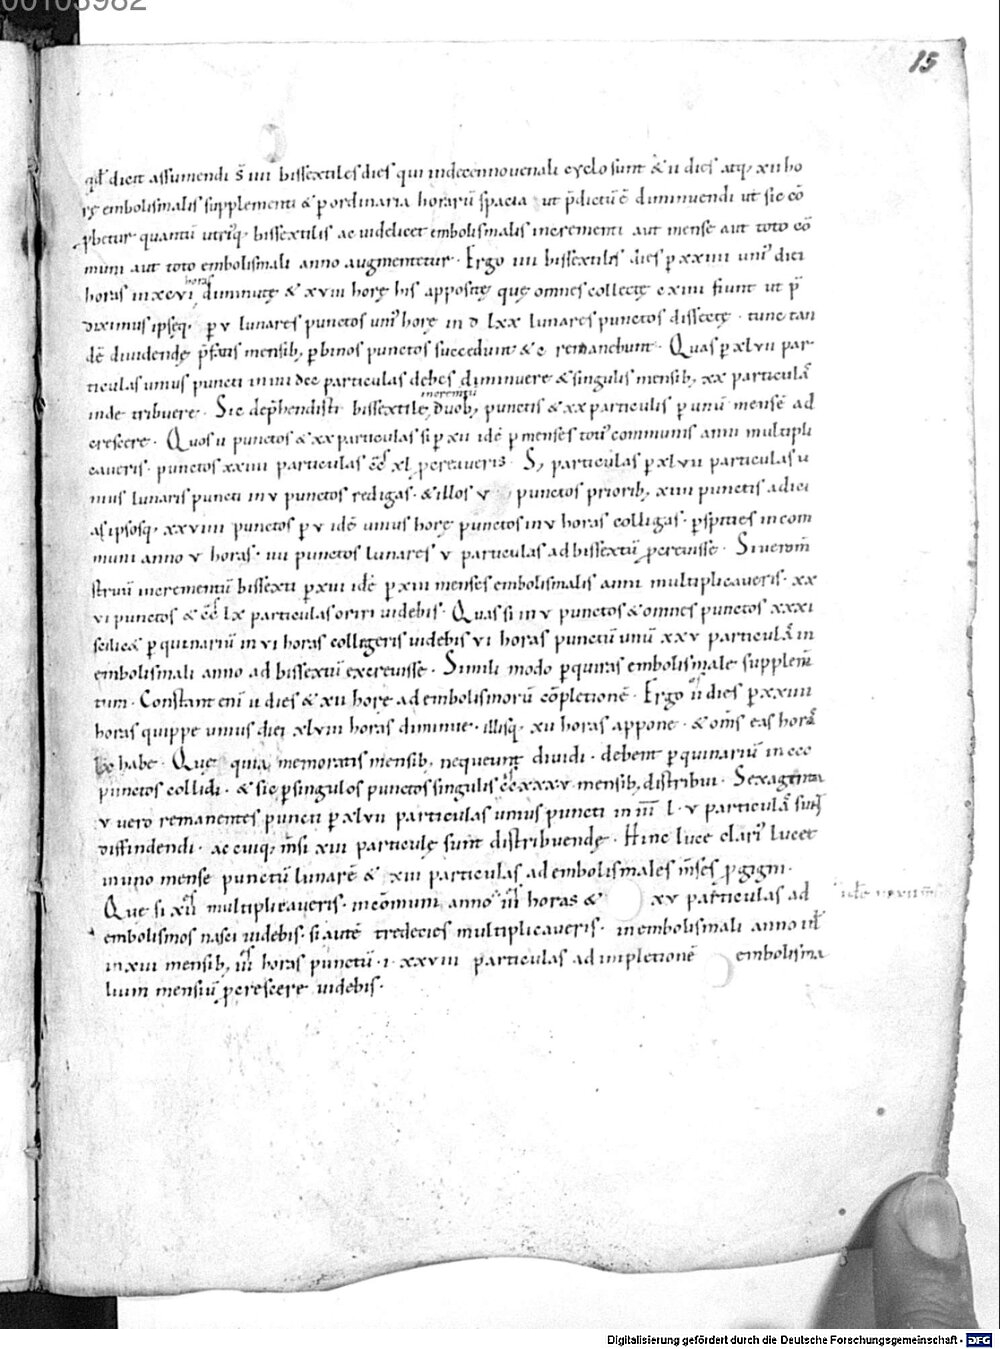 00103982
15
qd̄ dicit assumendi s̄ iiii bissextiles dies qui in decennovenali cyclo sunt & ii dies atq; xii ho
rę embolismalis supplementi & p ordinaria horarū spacia ut p̄dictū ē diminuendi ut sic cō
pbetur quantū utriq; bissextilis ac videlicet embolismalis incrementi aut mense aut toto cō
muni aut toto embolismali anno augmentetur · Ergo iiii bissextiles dies p xxiiii uni' diei
horas in xcvi horas diminutę & xviii horę his appositę quę omnes collectę cxiiii fiunt ut p̄
diximus ipsęq; p v lunares punctos uni' horę in d lxx lunares punctos dissectę · tunc tan
dē dividendę p̄fatis mensib; p binos punctos succedunt & c remanebunt · Quas p xlvii par
ticulas unius puncti in iiii dcc particulas debes diminuere & singulis mensib; xx particulā
inde tribuere · Sic dep̄hendisti bissextile incremtū duob; punctis & xx particulis p unū mensē ad
crescere · Quos ii punctos & xx particulas si p xii idē p menses toti' communis anni multipli
caveris · punctos xxiiii particulas cc xl pcreaveris · S; particulas p xlvii particulas u
nius lunaris puncti in v punctos redigas · & illos v punctos priorib; xxiiii punctis adici
as ipsosq; xxviiii punctos p v idē unius horę punctos in v horas colligas · pspities in com
muni anno v horas · iiii punctos lunares v particulas ad bissextū pcrevisse · Si vero m̄
struū incrementū bissexti p xiii idē p xiii menses embolismalis anni multiplicaveris · xx
vi punctos & cc lx particulas oriri videbis · Quas si in v punctos & omnes punctos xxxi
scilic& p quinariū in vi horas collegeris videbis vi horas punctū unū xxv particulā in
embolismali anno ad bissextū excrevisse · Simili modo pquiras embolismale supplem̄
tum · Constant eni ii dies & xii horę ad embolismorū cōpletionē · Ergo ii dies p xxiiii
horas quippe unius diei xlviii horas diminue · illisq; xii horas appone · & om̄s eas horā
lx habe · Quę quia memoratis mensib; nequeunt dividi · debent p quinariū in ccc
punctos collidi · & sic p singulos punctos singulis ccxxxv mensib; distribui · Sexaginta
v vero remanentes puncti p xlvii particulas unius puncti in iii l · v particulā sunt
diffindendi · ac cuiq; m̄si xiii particulę sunt distribuendę · Hinc luce clari' lucet
in uno mense punctū lunarē & xiii particulas ad embolismales m̄ses pgigni ·
Que si xii multiplicaveris · in cōmuni anno iii horas & xv particulas ad
embolismos nasci videbis · si autē tredecies multiplicaveris · in embolismali anno id
in xiii mensib; iii horas punctū · i · xxviii particulas ad impletionē embolisma
lium mensiū pcrescere videbis ·
Digitalisierung gefördert durch die Deutsche Forschungsgemeinschaft - DFG